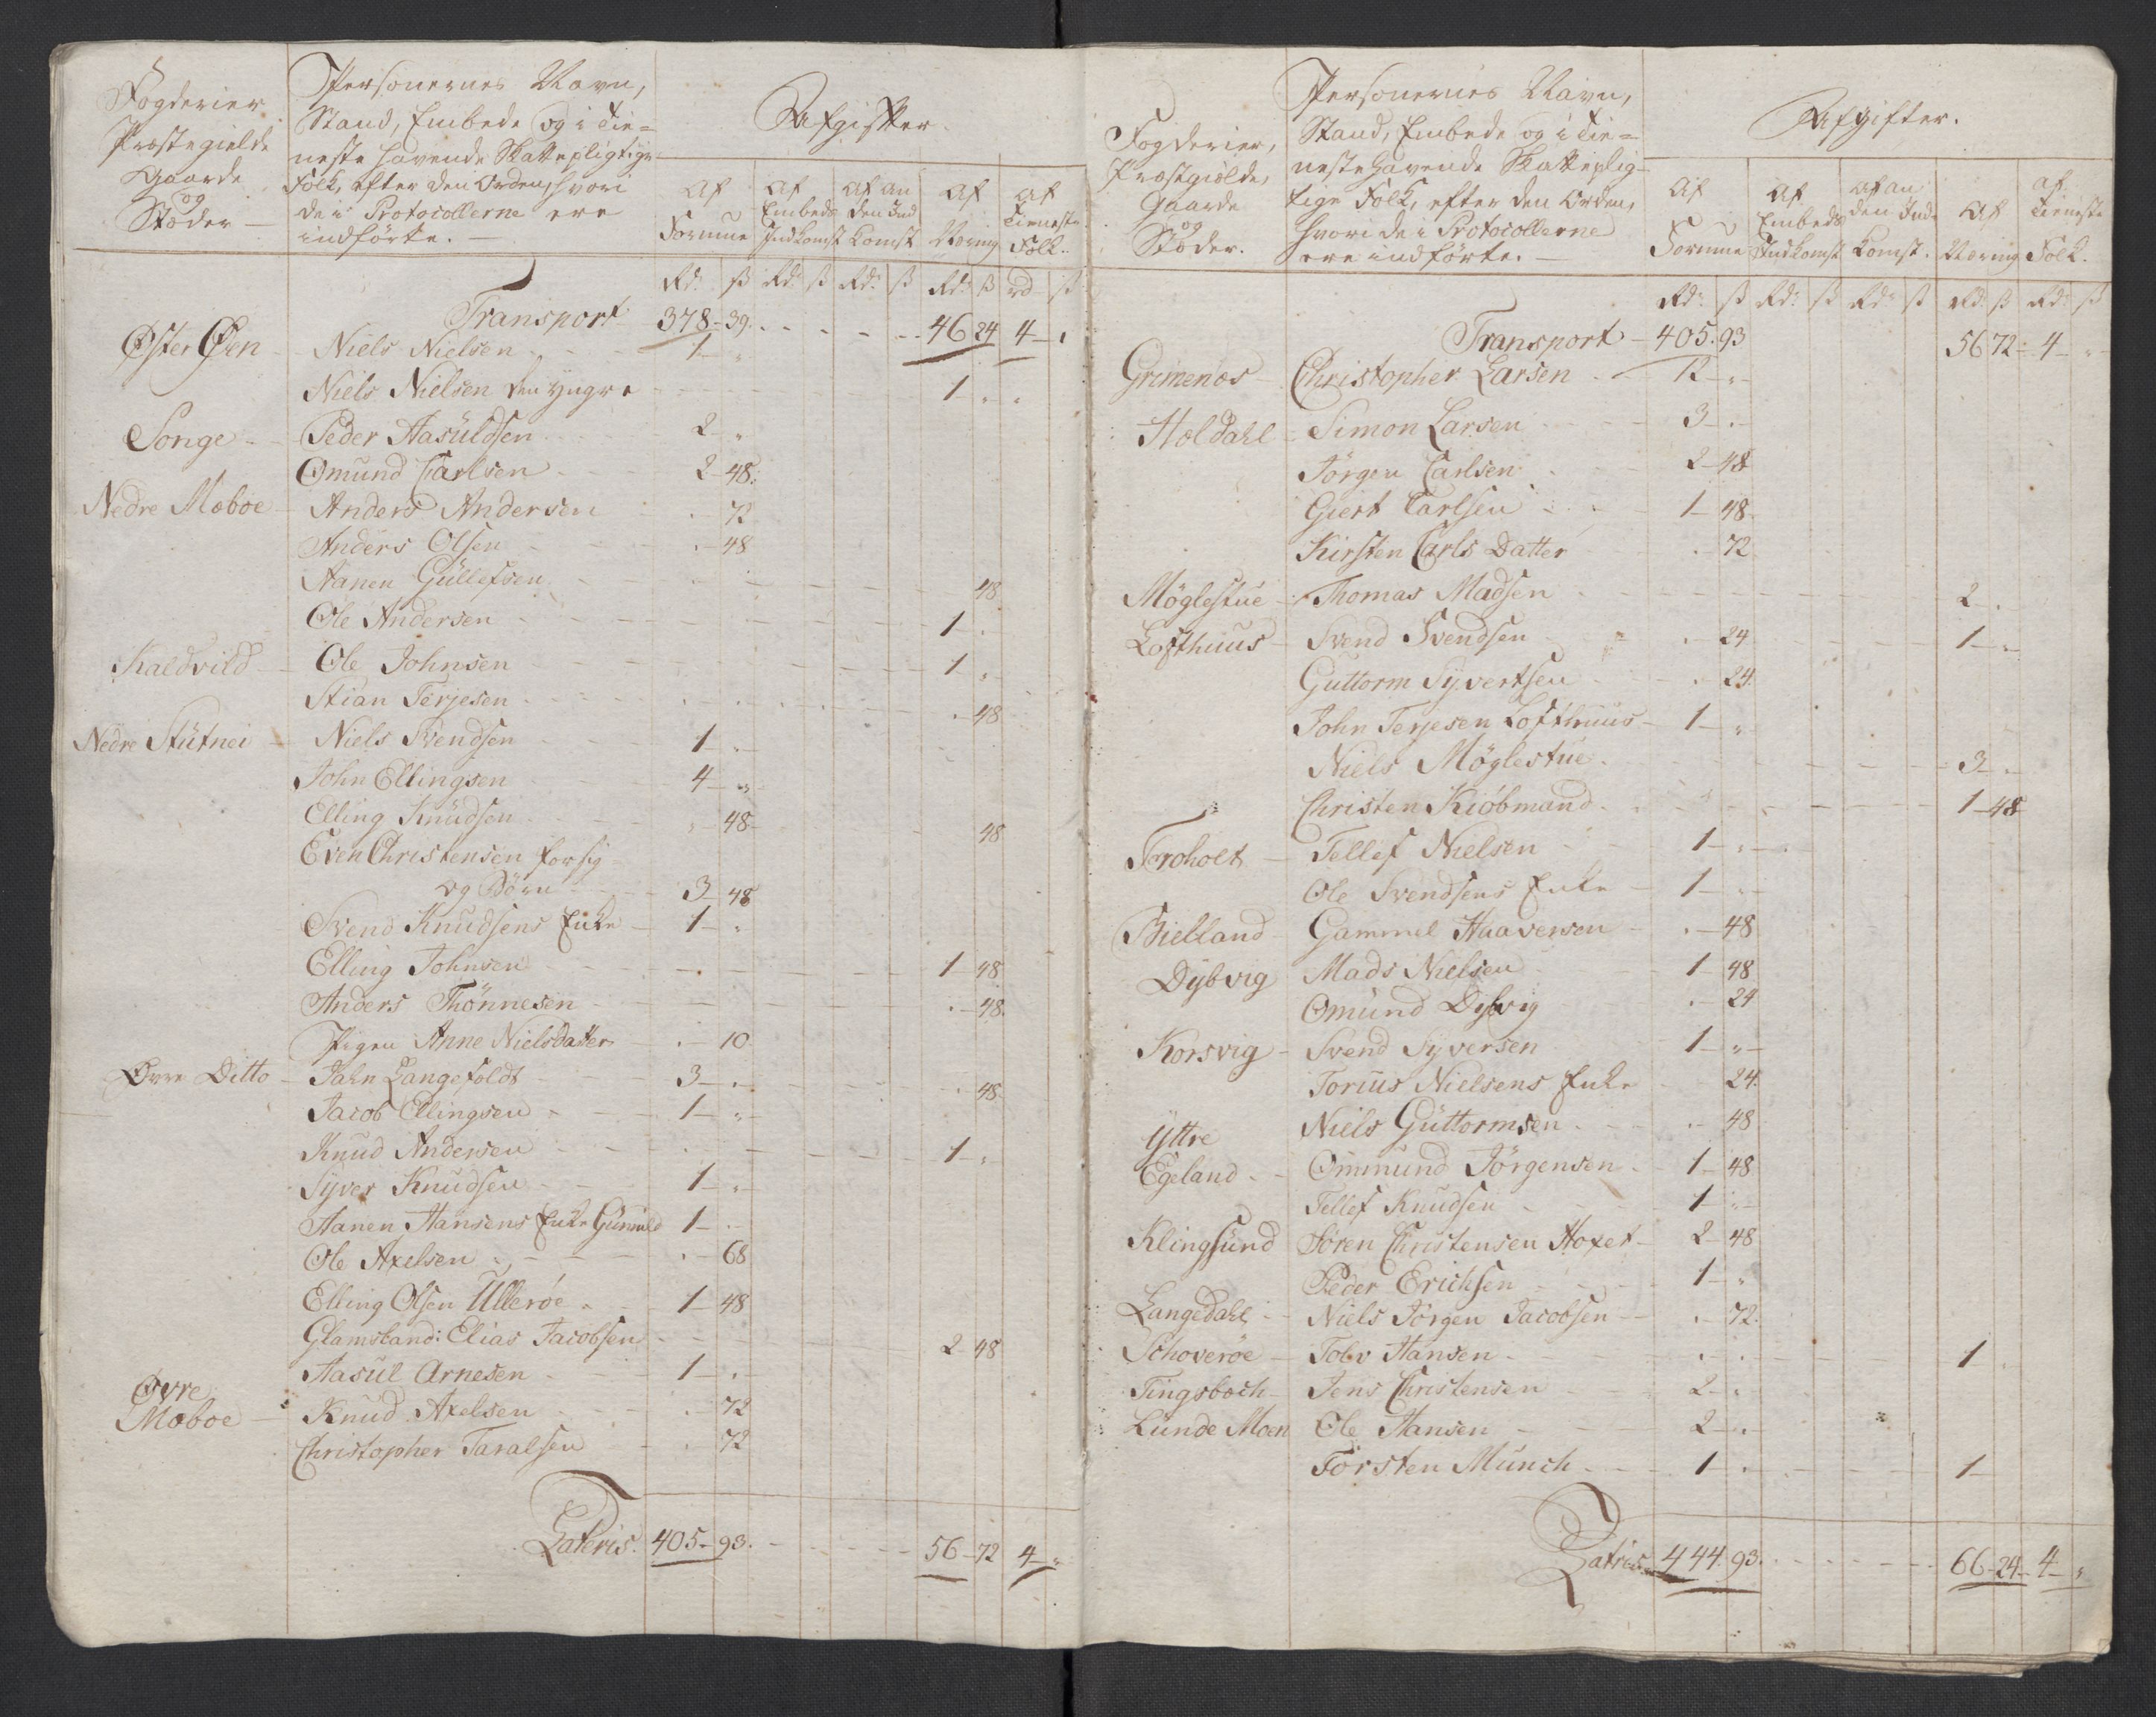 Fogderier
Præstegielde
Gaarde
og
Stæder
Personernes Navn,
Stand, Embede og i Tie=
neste havende Skattepligtige
Folk, efter den Orden, hvori
de i Protocollerne ere
indførte.
Afgifter.
Af Formue
Af Embeds Indkomst
Af an den Ind Komst
Af Næring
Af Tieneste Folk.
Rd. ß Rd. ß Rd. ß Rd. ß rd ß
Transport 378-39. 46 24 4
Øster Øen Niels Nielsen 1
Niels Nielsen den yngre 1
Songe Peder Aasüldsen 2
Omund Carlsen 2-48
Nedre Mæboe Anders Andersen 72
Anders Olsen 48
Aanen Güllefsen 48
Ole Andersen 1
Kaldvild Ole Johnsen 1
Stian Terjesen 48
Nedre Stütnei Niels Svendsen 1
John Ellingsen 4
Elling Knüdsen 48 48
Even Christensen for sig
og Børn 3 48
Svend Knudsens Enke 1
Elling Johnsen 1 48
Anders Thönnesen 48
Pigen Anne Nielsdatter 10
Øvre Ditto Jahn Langefeldt 3 48
Jacob Ellingsen 1
Knud Andersen 1
Syver Knudsen 1
Aanen Hansens Enke Günnild 1
Ole Axelsen 68
Elling Olsen Ullerøe 1-48
Glamsland: Elias Jacobsen 2 48
Aasül Arnesen 1
Øvre
Mæboe Knud Axelsen 72
Christopher Taralsen 72
Lateris. 405-93. 56-72 4
Fogderier,
Præstgiælde,
Gaarde
og
Stæder.
Personernes Navn,
Stand, Embede og i Tie=
neste havende Skatteplig=
tige Folk, efter den Orden,
hvori de i Protocollerne
ere indførte.
Afgifter.
Af Formue
Af Embeds Indkomst
Af an den Ind Komst.
Af Næring
Af Tieneste Folk.
Rd. ß Rd. ß Rd. ß Rd. ß Rd. ß
Transport 405.93 56 72 4
Grimenæs Christopher Larsen 12
Holdahl Simon Larsen 3
Jörgen Carlsen 2-48
Giert Carlsen 1-48
Kirsten Carls Datter 72
Möglestüe Thomas Madsen 2
Lofthuus Svend Svendsen 24 1
Guttorm Syvertsen 24
John Terjesen Lofthuus 1
Niels Möglestüe 3
Christen Kiöbmand 1-48
Froholt Tellef Nielsen 1
Ole Svendsens Enke 1
Bielland Gammel Haaversen 48
Dybvig Mads Nielsen 1 48
Omünd Dybvig 24
Korsvig Svend Syversen 1
Torius Nielsens Enke 24
Yttre Niels Güttormsen 48
Egeland Ommund Jörgensen 1-48
Tellef Knudsen 1
Klingsünd Sören Christensen Hoxer 2-48
Peder Erichsen 1
Langedahl Niels Jörgen Jacobsen 72
Schoveröe Tolv Hansen 1
Tingsboch Jens Christensen 2
Lünde Moen Ole Hansen 2
Torsten Münch 1 1
Latris. 444.93. 66-24 4